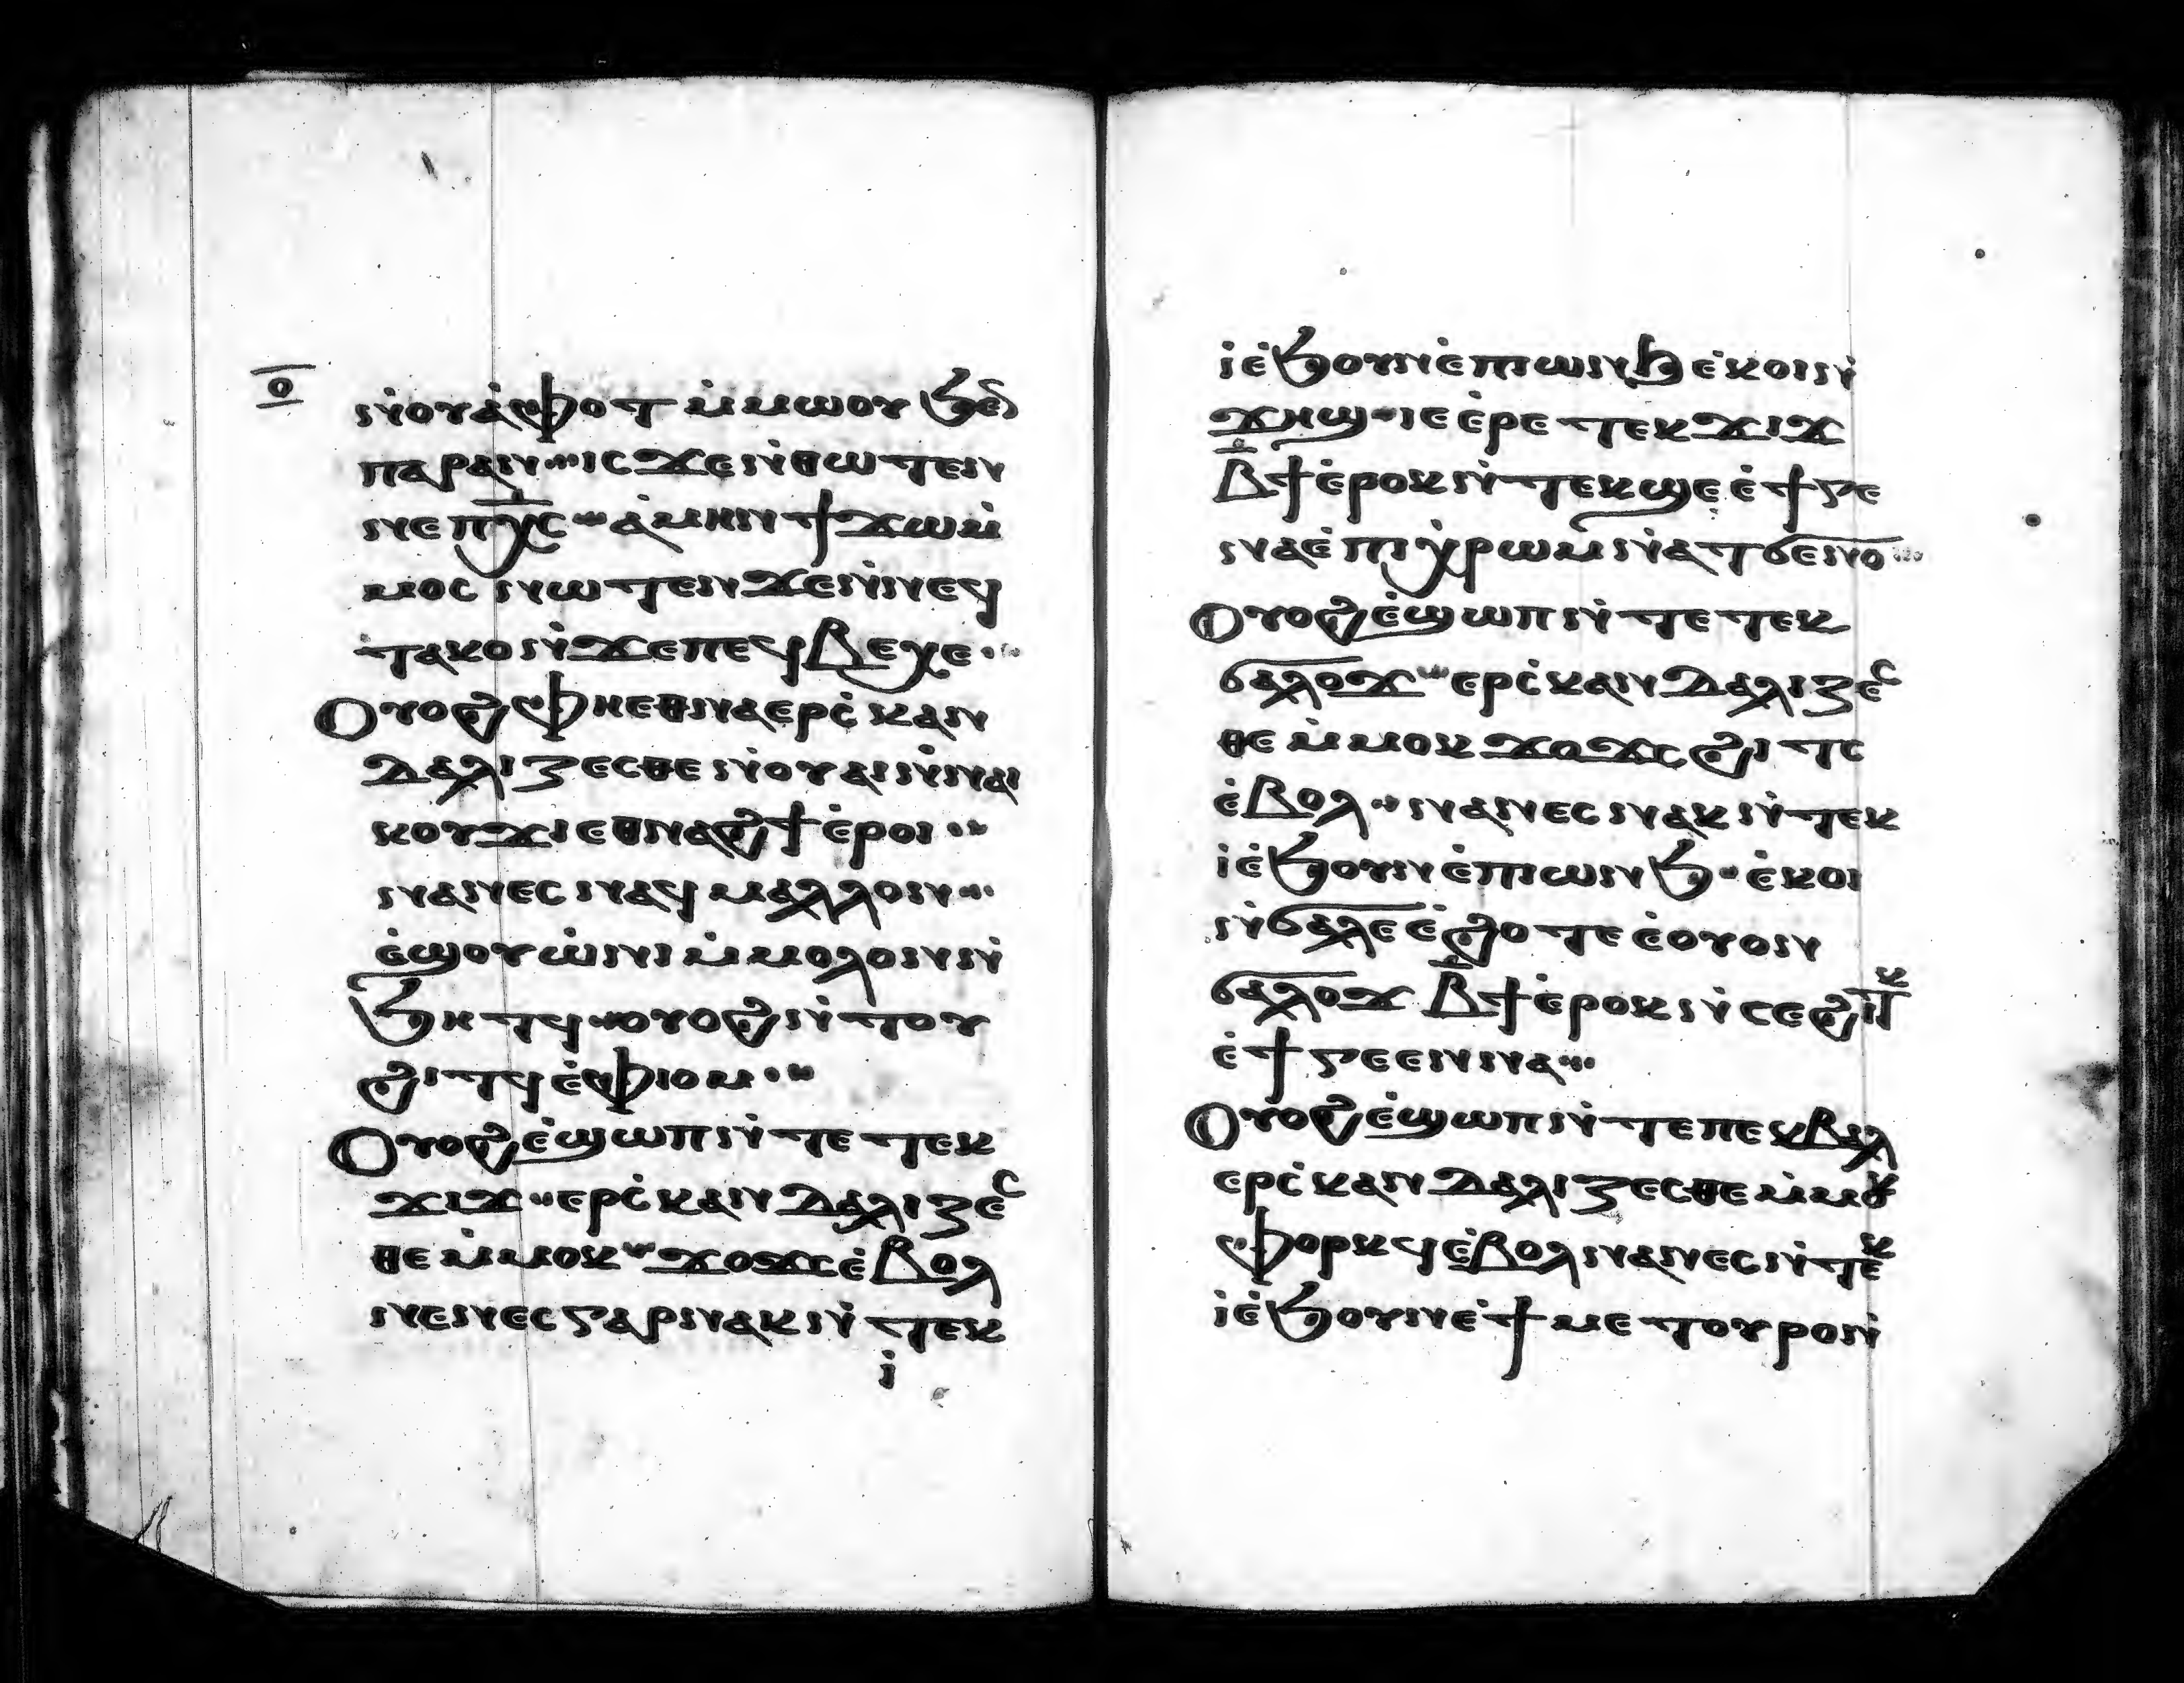 ⲟ̅
ⲛ̀ⲟⲩⲁ̀ⲫⲟⲧ ⲙ̀ⲙⲱⲟⲩ ϧⲉⲛ
ⲡⲁⲣⲁⲛ ⲓⲥϫⲉ ⲛ̀ⲑⲱⲧⲉⲛ
ⲛⲉ ⲡⲭ̅ⲥ ⲁ̀ⲙⲏⲛ ϯϫⲱⲙ̀
ⲙⲟⲥ ⲛⲱⲧⲉⲛ ϫⲉ ⲛ̀ⲛⲉϥ
ⲧⲁⲕⲟ ⲛ̀ϫⲉ ⲡⲉϥⲃⲉⲭⲉ
Ⲟⲩⲟϩ ⲫⲏⲉⲑⲛⲁⲉⲣⲥ̀ⲕⲁⲛ
ⲇⲁⲗⲓⲍⲉⲥⲑⲉ ⲛ̀ⲟⲩⲁⲓ ⲛ̀ⲛⲁⲓ
ⲕⲟⲩϫⲓ ⲉⲑⲛⲁϩϯ ⲉ̀ⲣⲟⲓ
ⲛⲁⲛⲉⲥ ⲛⲁϥ ⲙⲁⲗⲗⲟⲛ
ⲉ̀ϣⲟⲩⲱ̀ⲛⲓ ⲙ̀ⲙⲟⲗⲟⲛ ⲛ̀
ϧⲏⲧϥ ⲟⲩⲟϩ ⲛ̀ⲧⲟⲩ
ϩⲓⲧϥ ⲉ̀ⲫⲓⲟⲙ
Ⲟⲩⲟϩ ⲉ̀ϣⲱⲡ ⲛ̀ⲧⲉ ⲧⲉⲕ
ϫⲓϫ ⲉⲣⲥ̀ⲕⲁⲛⲇⲁⲗⲓⲍⲉⲥ
ⲑⲉ ⲙ̀ⲙⲟⲕ ϫⲟϫⲥ ⲉ̀ⲃⲟⲗ
ⲛⲉⲛⲉⲥ ⲅⲁⲣ ⲛⲁⲕ ⲛ̀ⲧⲉⲕ
ⲓ̀
ⲓ̀ ⲉ̀ϧⲟⲩⲛ ⲉ̀ⲡⲓⲱⲛϧ ⲉ̀ⲕⲟⲓ ⲛ̀
ϫⲏϣ ⲓⲉ ⲉ̀ⲣⲉ ⲧⲉⲕϫⲓϫ
ⲃ̅ϯ ⲉ̀ⲣⲟⲕ ⲛ̀ⲧⲉⲕϣⲉ ⲉ̀ϯⲅⲉ
ⲉⲛⲁ ⲉ̀ⲡⲓⲭ̀ⲣⲱⲙ ⲛ̀ⲁⲧϭⲉⲛⲟ
Ⲟⲩⲟϩ ⲉ̀ϣⲱⲡ ⲛ̀ⲧⲉ ⲧⲉⲕ
ϭⲁⲗⲟϫ ⲉⲣⲥ̀ⲕⲁⲛⲇⲁⲗⲓⲍⲉⲥ
ⲑⲉ ⲙ̀ⲙⲟⲕ ϫⲟϫⲥ ϩⲓⲧⲥ
ⲉ̀ⲃⲟⲗ ⲛⲁⲛⲉⲥ ⲛⲁⲕ ⲛ̀ⲧⲉⲕ
ⲓ̀ ⲉ̀ϧⲟⲩⲛ ⲉ̀ⲡⲓⲱⲛϧ ⲉ̀ⲕⲟⲓ
ⲛ̀ϭⲁⲗⲉ ⲉ̀ϩⲟⲧⲉ ⲉ̀ⲟⲩⲟⲛ
ϭⲁⲗⲟϫ ⲃ̅ϯ ⲉ̀ⲣⲟⲕ ⲛ̀ⲥⲉϩⲓⲧⲕ
ⲉ̀ϯⲅⲉⲉⲛⲛⲁ
Ⲟⲩⲟϩ ⲉ̀ϣⲱⲡ ⲛ̀ⲧⲉ ⲡⲉⲕⲃⲁⲗ
ⲉⲣⲥ̀ⲕⲁⲛⲇⲁⲗⲓⲍⲉⲥⲑⲉ ⲙ̀ⲙⲟⲕ
ⲫⲟⲣⲕϥ ⲉ̀ⲃⲟⲗ ⲛⲁⲛⲉⲥ ⲛ̀ⲧⲉⲕ
ⲓ̀ ⲉ̀ϧⲟⲩⲛ ⲉ̀ϯⲙⲉⲧⲟⲩⲣⲟ ⲛ̀